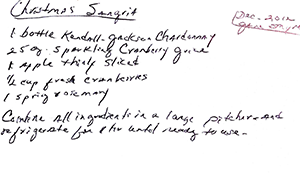 Christmas Sangria
1 bottle Kendall-Jackson Chardonnay
25 oz. sparkling Cranberry Juice
1 Apple thinly sliced
1/2 cup fresh cranberries
1 sprig rosemary
Combine all ingredients in a large pitcher and
refrigerate for 8 hr until ready to use.
Dec - 2012